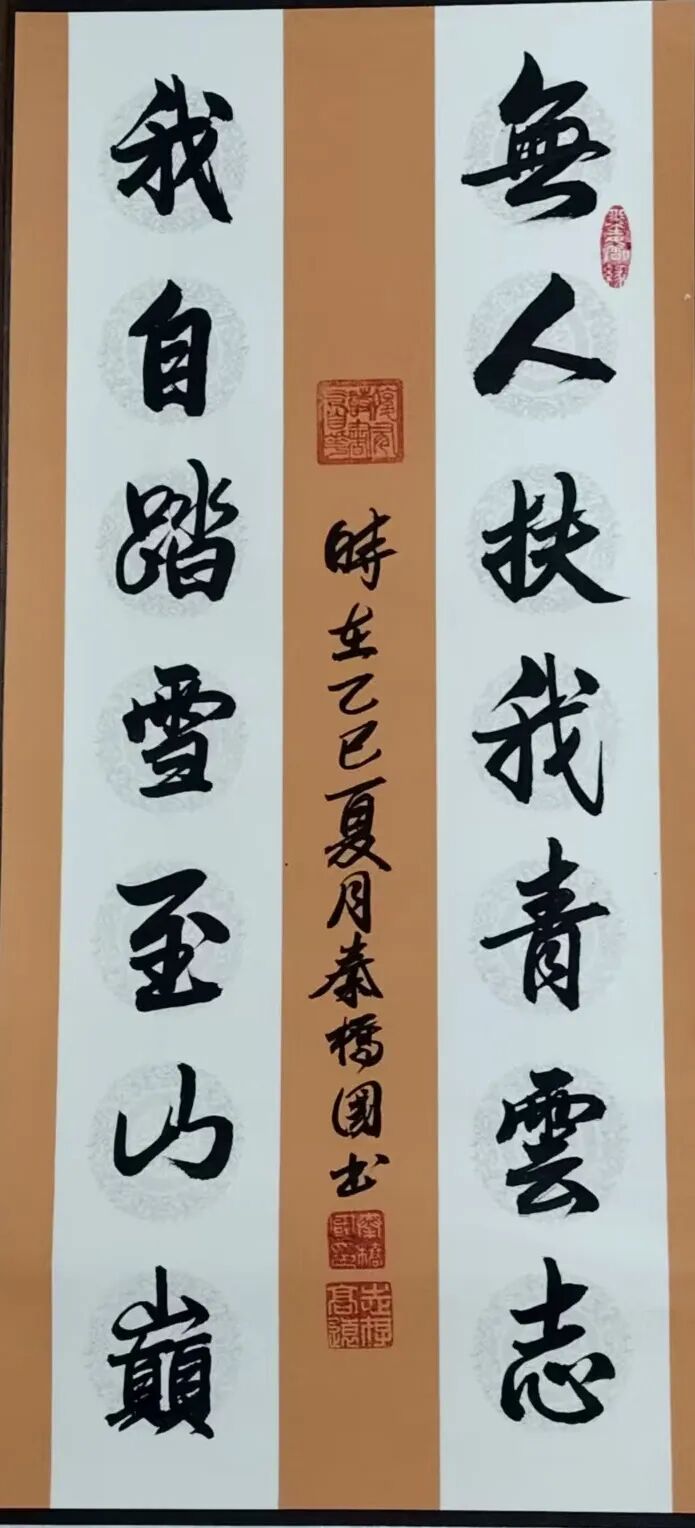 無人扶我青雲志
我自踏雪至山巔
時在乙巳夏月秦橋國书
志存高遠